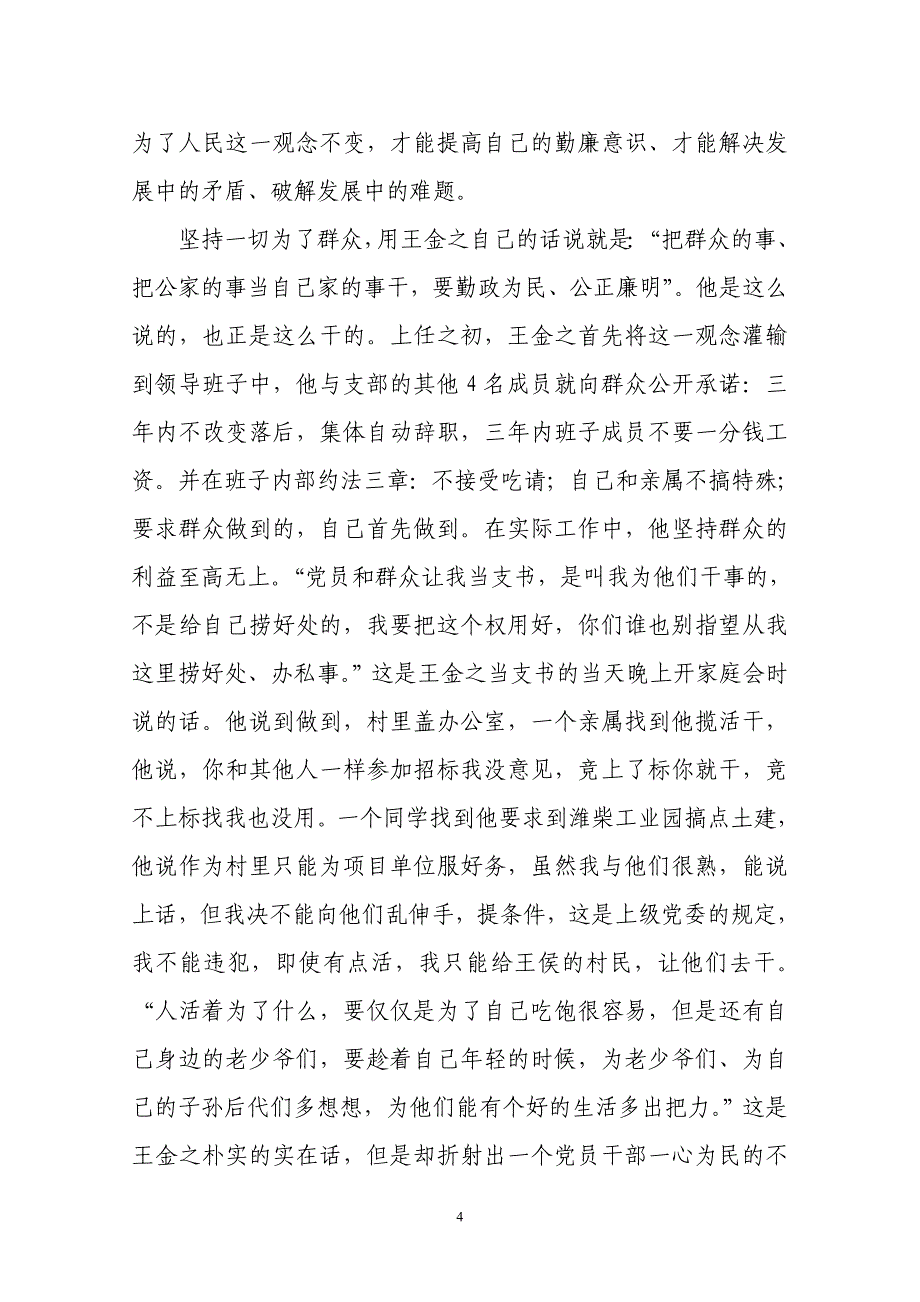 为了人民这一观念不变，才能提高自己的勤廉意识、才能解决发
展中的矛盾、破解发展中的难题。
坚持一切为了群众，用王金之自己的话说就是：“把群众的事、
把公家的事当自己家的事干，要勤政为民、公正廉明”。他是这么
说的，也正是这么干的。上任之初，王金之首先将这一观念灌输
到领导班子中，他与支部的其他 4 名成员就向群众公开承诺：三
年内不改变落后，集体自动辞职，三年内班子成员不要一分钱工
资。并在班子内部约法三章：不接受吃请；自己和亲属不搞特殊；
要求群众做到的，自己首先做到。在实际工作中，他坚持群众的
利益至高无上。“党员和群众让我当支书，是叫我为他们干事的，
不是给自己捞好处的，我要把这个权用好，你们谁也别指望从我
这里捞好处、办私事。”这是王金之当支书的当天晚上开家庭会时
说的话。他说到做到，村里盖办公室，一个亲属找到他揽活干，
他说，你和其他人一样参加招标我没意见，竞上了标你就干，竞
不上标找我也没用。一个同学找到他要求到潍柴工业园搞点土建，
他说作为村里只能为项目单位服好务，虽然我与他们很熟，能说
上话，但我决不能向他们乱伸手，提条件，这是上级党委的规定，
我不能违犯，即使有点活，我只能给王侯的村民，让他们去干。
“人活着为了什么，要仅仅是为了自己吃饱很容易，但是还有自
己身边的老少爷们，要趁着自己年轻的时候，为老少爷们、为自
己的子孙后代们多想想，为他们能有个好的生活多出把力。”这是
王金之朴实的实在话，但是却折射出一个党员干部一心为民的不
4